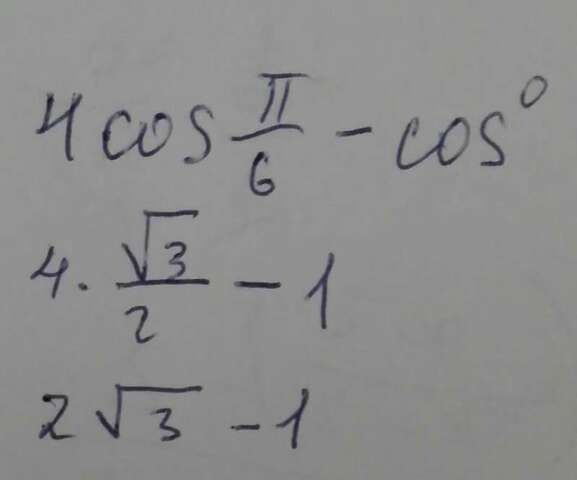 4 cos π/6 - cos⁰
4 · √3/2 - 1
2√3 - 1